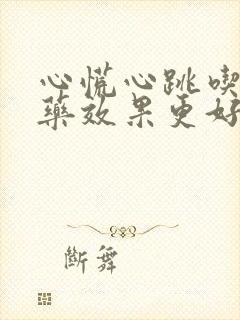 心慌心跳喫
藥效果更好
斷舞